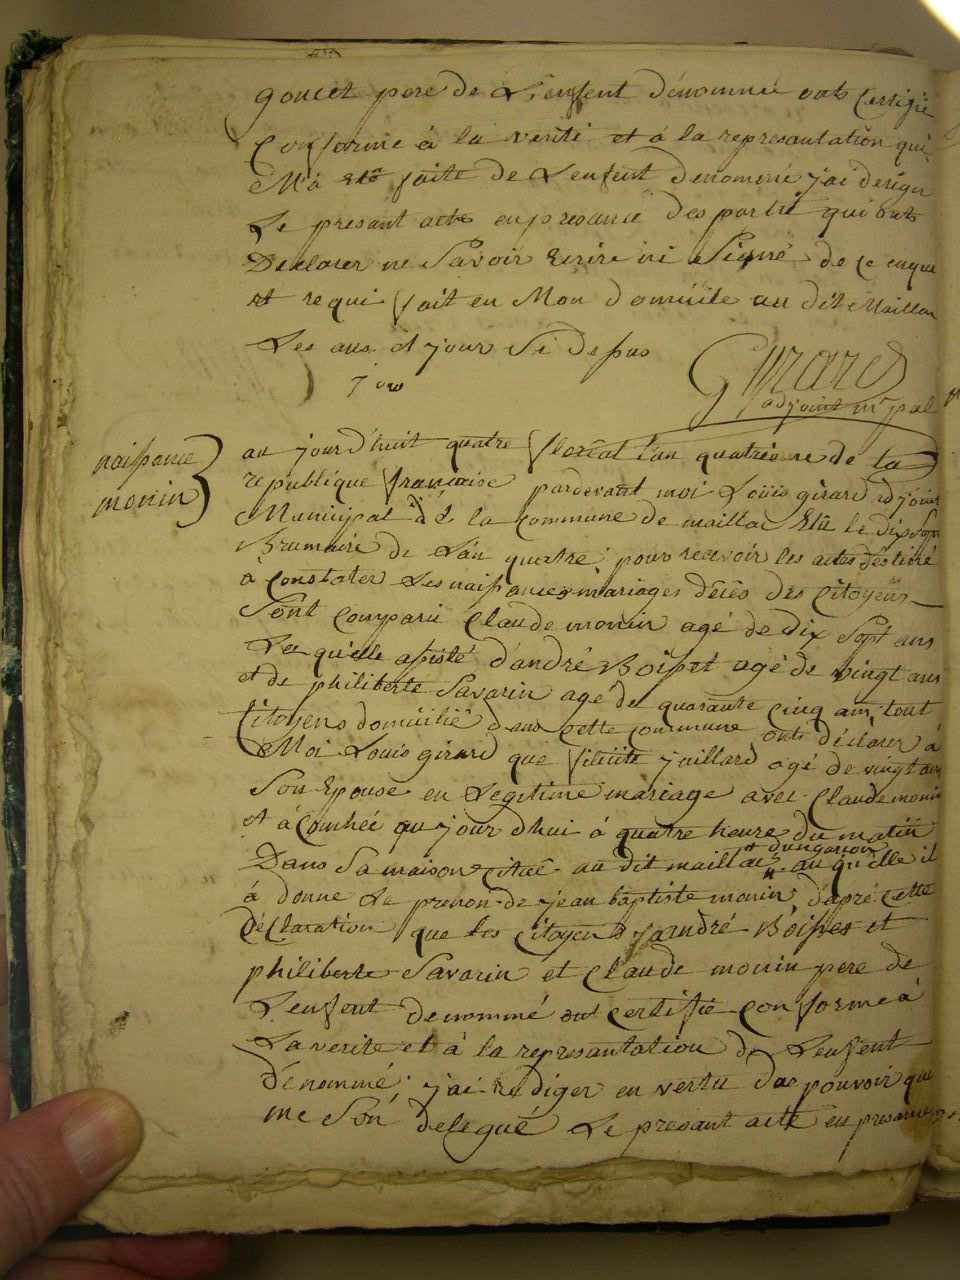 goncet pere de L'enfent dénommé onts Certifié
Conforme á la verité et á la represantation qui
M'a eté faite de L'enfent denommé j'ai designé
Le presant acte enpresance des partié qui onts
Declarer ne Savoir Ecrire ni Signé de ce enque
et requi fait en Mon domicile au dit Maillac
Les ans et jour Si desus
Girard
adjoint m.pal
naissance
monin
au jourd'huit quatre floréal l'an quatrieme de la
republique francaise pardevant moi Loüis girard adjoint
Municipal de la Commune de maillac Elu le dix Sept
Brumaire de L'an quatre pour recevoir les actes destiné
á constater Les naissances mariages déces des Citoyens
Sont Comparu Claude monin agé de dix Sept ans
Le quelle assisté d'andré Boisset agé de vingt ans
et de philiberte Savarin agé de quarante Cinq ans tout
Citoyens domicilié dans cette commune onts déclarer á
Moi Louis girard que felicité jaillard agé de vingt ans
Son Epouse en Légitime mariage avec Claude monin
et acouchée aujourd'hui á quatre heure du matin
Dans Sa maison citué au dit maillac d'un garcon auquelle il
á donné Le prenon de jean baptiste monin d'apré cette
Déclaration que les Citoyens andré Boisset et
philiberte Savarin et Claude monin pere de
L'enfent denommé ont certifié conforme á
La verite et á la represantation de L'enfent
dénommé j'ai rediger en vertu des pouvoir que
me Son delegué Le presant acte en presance